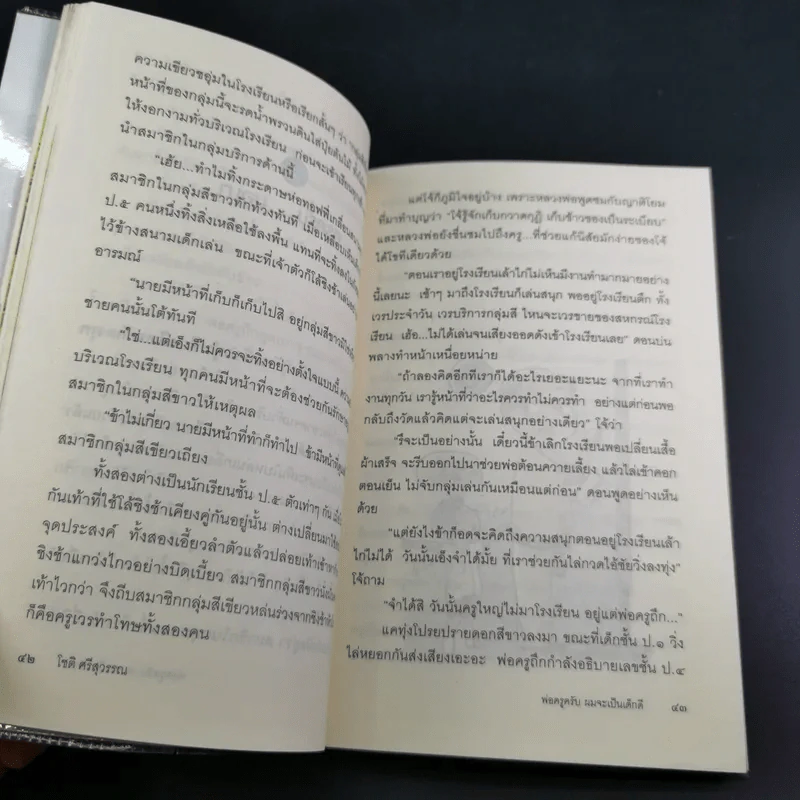 ความเขียวขอุ่มในโรงเรียนหรือเรียกสั้นๆ ว่า
หน้าที่ของกลุ่มนี้จะรดน้ำพรวนดินใส่ปุ๋ยต้นไม้
ให้งอกงามทั่วบริเวณโรงเรียน ก่อนจะเข้าเรียนทุก
นำสมาชิกในกลุ่มบริการด้านนี้
“เฮ้ย...ทำไมทิ้งกระดาษห่อทอฟฟี่เกลื่อน
สมาชิกในกลุ่มสีขาวทักท้วงทันที เมื่อเหลือบเห็น
ป.๕ คนหนึ่งทิ้งสิ่งเหลือใช้ลงพื้น แทนที่จะทิ้งลง
ไว้ข้างสนามเด็กเล่น ขณะที่เจ้าตัวก็โล้ชิงช้าเล่น
อารมณ์
“นายมีหน้าที่เก็บก็เก็บไปสิ อยู่กลุ่มสีขาวมิใช่
ชายคนนั้นโต้ทันที
“ใช่...แต่เอ็งก็ไม่ควรจะทิ้งอย่างตั้งใจแบบนี้
บริเวณโรงเรียน ทุกคนมีหน้าที่จะต้องช่วยกันรักษา
สมาชิกในกลุ่มสีขาวให้เหตุผล
“ข้าไม่เกี่ยว นายมีหน้าที่ทำก็ทำไป ข้ามีหน้าที่
สมาชิกกลุ่มสีเขียวเถียง
ทั้งสองต่างเป็นนักเรียนชั้น ป.๕ ตัวเท่าๆ กัน
กันเท้าที่ใช้โล้ชิงช้าเคียงคู่กันอยู่นั้น ต่างเปลี่ยนมาใช้
จุดประสงค์ ทั้งสองเอี้ยวลำตัวแล้วปล่อยเท้าเข้าหา
ชิงช้าแกว่งไกวอย่างบิดเบี้ยว สมาชิกกลุ่มสีขาว
เท้าไวกว่า จึงถีบสมาชิกกลุ่มสีเขียวหล่นร่วงจากชิงช้า
ก็คือครูเวรทำโทษทั้งสองคน
๔๒ โชติ ศรีสุวรรณ
แต่โจ้ก็ภูมิใจอยู่บ้าง เพราะหลวงพ่อพูดชมกับญาติโยม
ที่มาทำบุญว่า “โจ้รู้จักเก็บกวาดกุฏิ เก็บข้าวของเป็นระเบียบ”
และหลวงพ่อยังชื่นชมไปถึงครู...ที่ช่วยแก้นิสัยมักง่ายของโจ้
ได้โขทีเดียวด้วย
“ตอนเราอยู่โรงเรียนเล้าไก่ไม่เห็นมีงานทำมากมายอย่าง
นี้เลยนะ เช้าๆ มาถึงโรงเรียนก็เล่นสนุก พออยู่โรงเรียนตึก ทั้ง
เวรประจำวัน เวรบริการกลุ่มสี ไหนจะเวรขายของสหกรณ์โรง
เรียน เฮ้อ...ไม่ได้เล่นจนเสียงออดดังเข้าโรงเรียนเลย” ตอนบ่น
พลางทำหน้าเหนื่อยหน่าย
“ถ้าลองคิดอีกทีเราก็ได้อะไรเยอะแยะนะ จากที่เราทำ
งานทุกวัน เรารู้หน้าที่ว่าอะไรควรทำไม่ควรทำ อย่างแต่ก่อนพอ
กลับถึงวัดแล้วคิดแต่จะเล่นสนุกอย่างเดียว” โจ้ว่า
“รึจะเป็นอย่างนั้น เดี๋ยวนี้ข้าเลิกโรงเรียนพอเปลี่ยนเสื้อ
ผ้าเสร็จ จะรีบออกไปนาช่วยพ่อต้อนควายเลี้ยง แล้วไล่เข้าคอก
ตอนเย็น ไม่จับกลุ่มเล่นกันเหมือนแต่ก่อน” ตอนพูดอย่างเห็น
ด้วย
“แต่ยังไงข้าก็อดจะคิดถึงความสนุกตอนอยู่โรงเรียนเล้า
ไก่ไม่ได้ วันนั้นเอ็งจำได้มั้ย ที่เราช่วยกันไล่กวดไอ้ชัยวิ่งลงทุ่ง”
โจ้ถาม
“จำได้สิ วันนั้นครูใหญ่ไม่มาโรงเรียน อยู่แต่พ่อครูถึก...”
แคทุ่งโปรยปรายดอกสีขาวลงมา ขณะที่เด็กชั้น ป.๑ วิ่ง
ไล่หยอกกันส่งเสียงเอะอะ พ่อครูถึกกำลังอธิบายเลขชั้น ป.๔
พ่อครูครับ ผมจะเป็นเด็กดี ๔๓